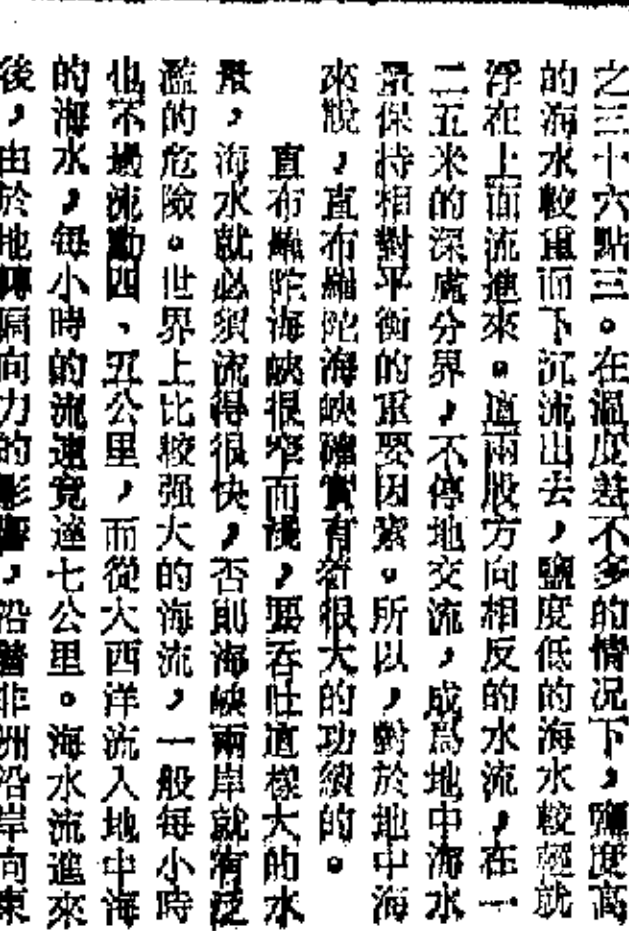 之三十六點三。在溫度差不多的情况下，鹽度高
的海水較重而下沉流出去，鹽度低的海水較輕就
浮在上面流進來。這兩股方向相反的水流，在一
二五米的深處分界，不停地交流，成爲地中海水
量保持相對平衡的重要因素。所以，對於地中海
來說，直布羅陀海峽確實有着很大的功績的。
直布羅陀海峽很窄而淺，要吞吐這樣大的水
量，海水就必須流得很快，否則海峽兩岸就有泛
濫的危險。世界上比較强大的海流，一般每小時
也不過流動四、五公里，而從大西洋流入地中海
的海水，每小時的流速竟達七公里。海水流進來
後，由於地轉偏向力的影響，沿着非洲沿岸向東